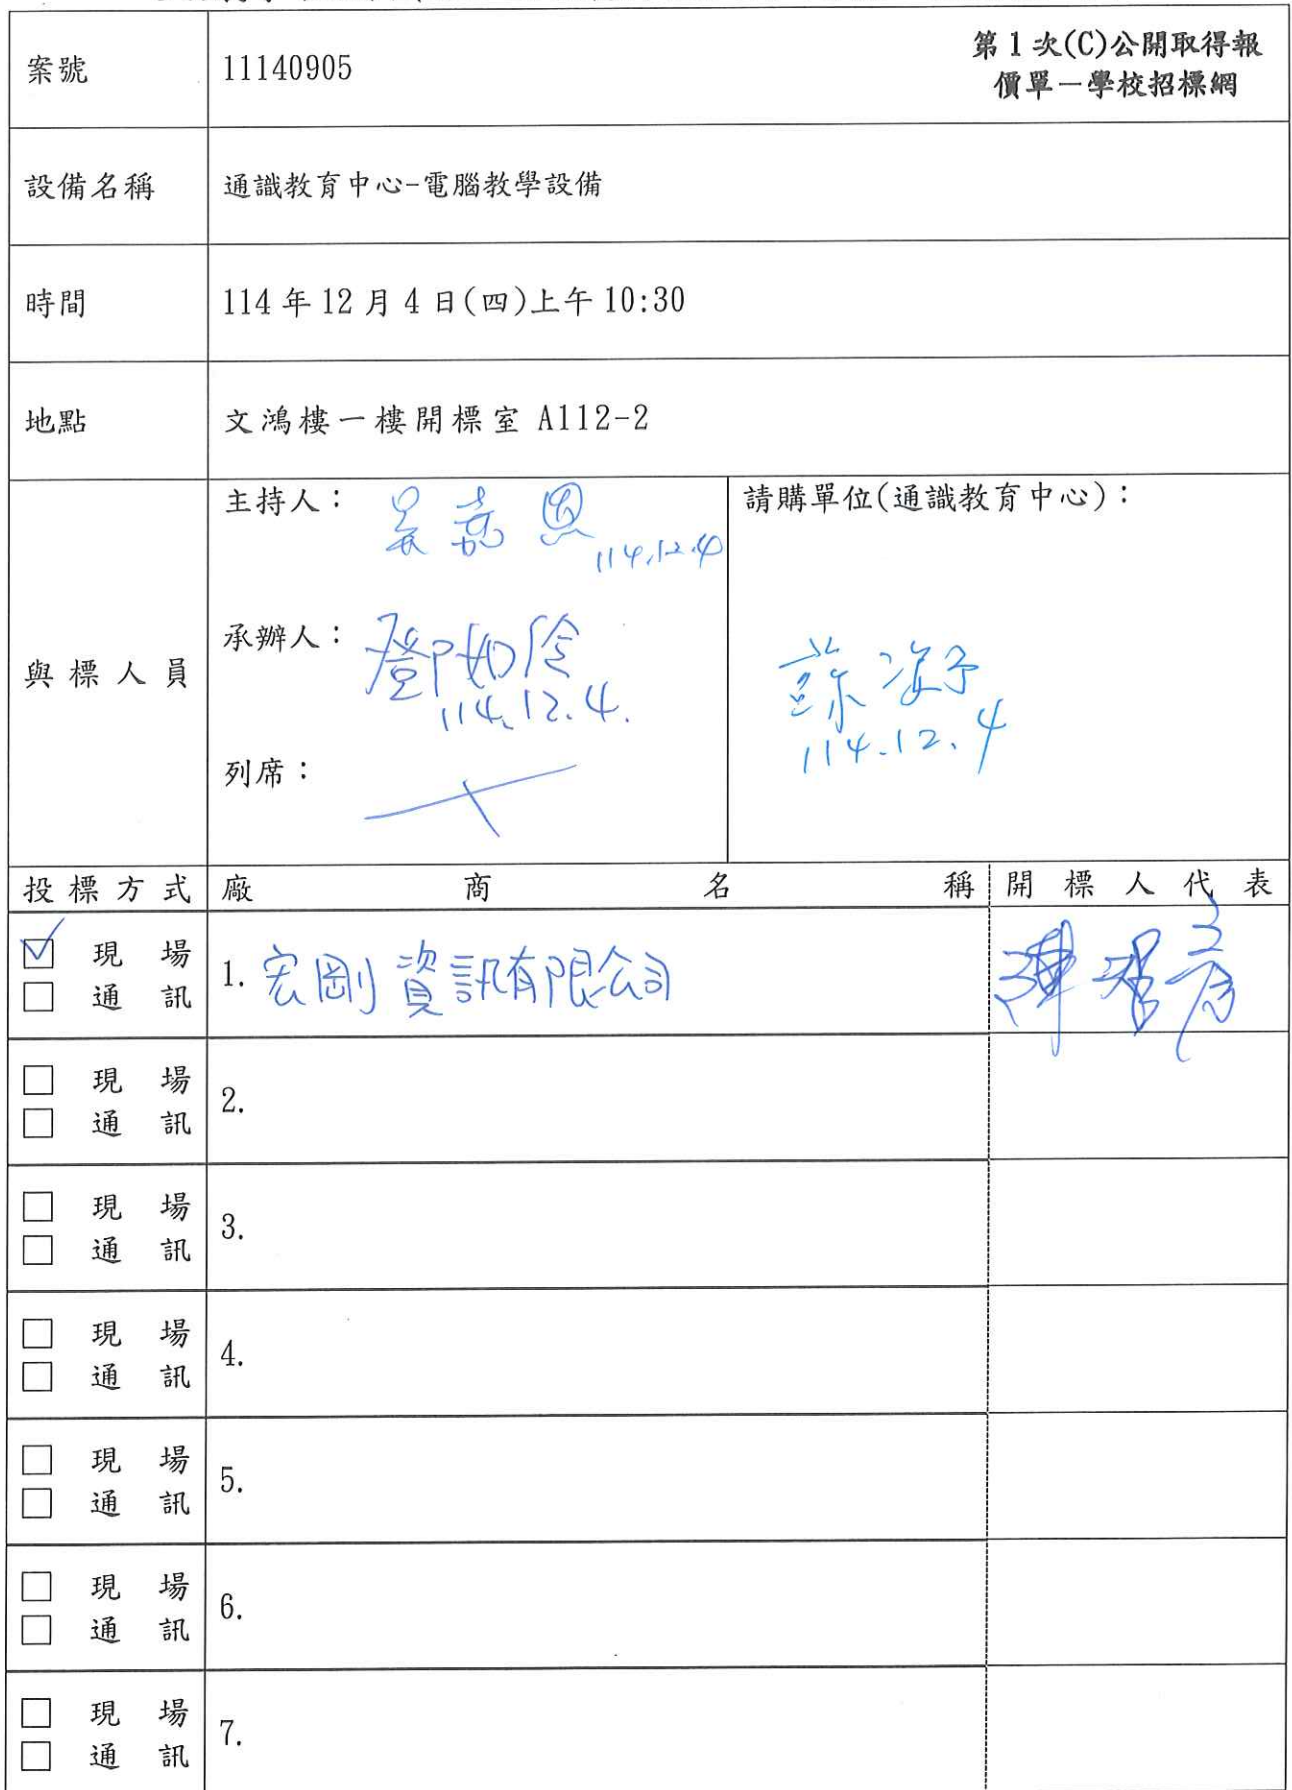 案號 11140905 第1次(C)公開取得報
價單－學校招標網
設備名稱 通識教育中心-電腦教學設備
時間 114年12月4日(四)上午10:30
地點 文鴻樓一樓開標室 A112-2
與標人員
主持人： 吳嘉恩
114.12.4
承辦人： 鄧如伶
114.12.4.
列席：
請購單位(通識教育中心)：
蘇
114.12.4
投標方式 廠商名稱 開標人代表
☑ 現場
□ 通訊
1. 宏剛資訊有限公司
陳
□ 現場
□ 通訊
2.
□ 現場
□ 通訊
3.
□ 現場
□ 通訊
4.
□ 現場
□ 通訊
5.
□ 現場
□ 通訊
6.
□ 現場
□ 通訊
7.